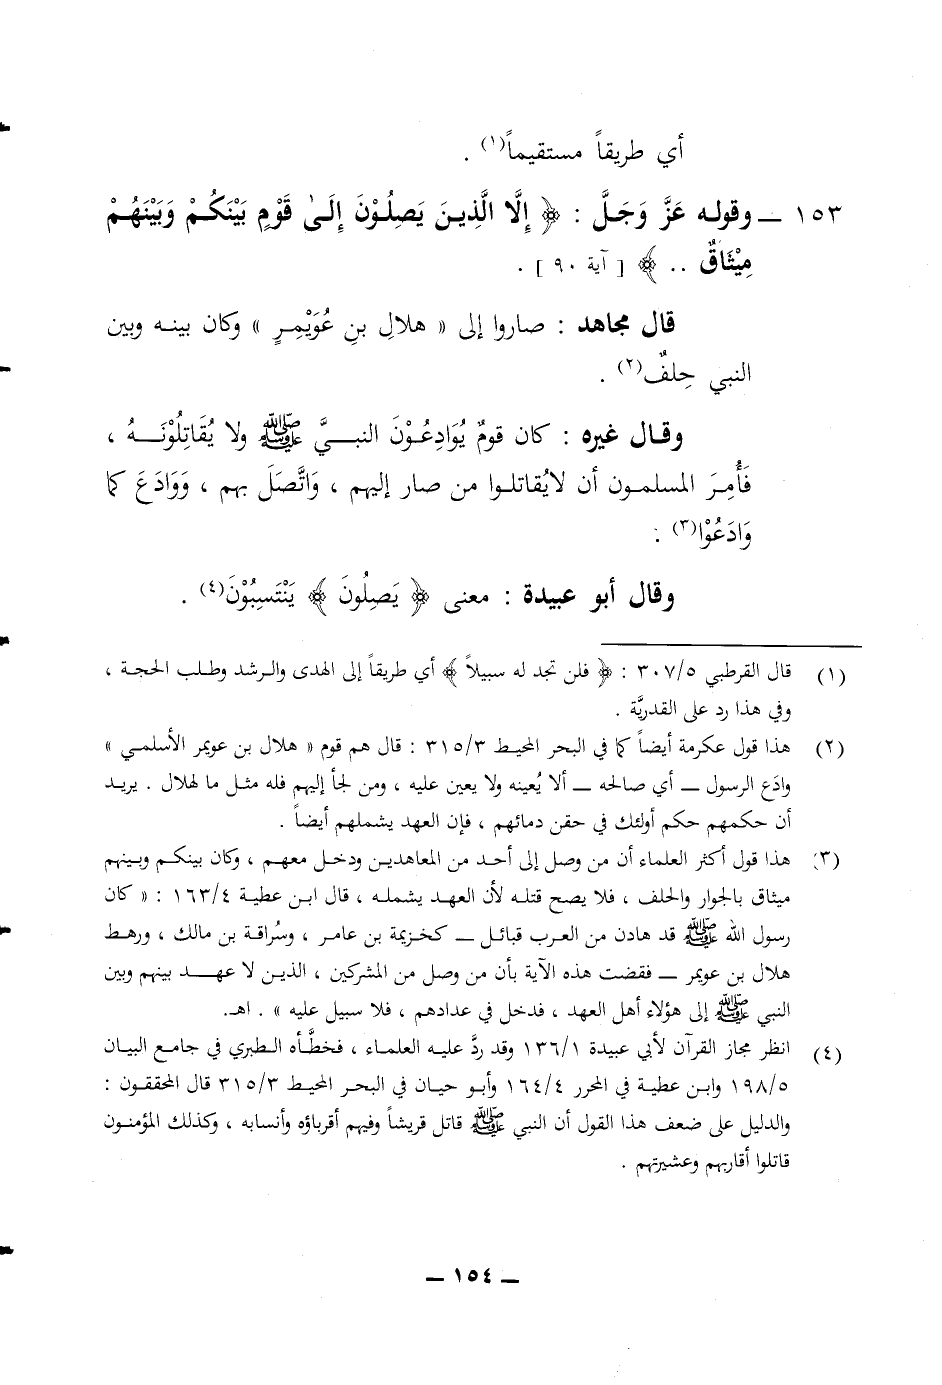 أي طريقاً مستقيماً(١) .
١٥٣ ــ وقوله عَزَّ وَجَلَّ : ﴿ إِلَّا الَّذِينَ يَصِلُوْنَ إِلَىٰ قَوْمٍ بَيْنَكُمْ وَبَيْنَهُمْ
مِيْثَاقٌ .. ﴾ [ آية ٩٠ ] .
قال مجاهد : صاروا إلى « هلالِ بنِ عُوَيْمِرٍ » وكان بينه وبين
النبي حِلفٌ(٢) .
وقال غيره : كان قومٌ يُوَادِعُوْنَ النبيَّ ﷺ ولا يُقَاتِلُوْنَهُ ،
فَأُمِرَ المسلمون أن لايُقاتلوا من صار إليهم ، وَاتَّصَلَ بهم ، وَوَادَعَ كما
وَادَعُوْا(٣) .
وقال أبو عبيدة : معنى ﴿ يَصِلُونَ ﴾ يَنْتَسِبُوْنَ(٤) .
(١) قال القرطبي ٣٠٧/٥ : ﴿ فلن تجد له سبيلاً ﴾ أي طريقاً إلى الهدى والرشد وطلب الحجة ،
وفي هذا رد على القدريَّة .
(٢) هذا قول عكرمة أيضاً كما في البحر المحيط ٣١٥/٣ : قال هم قوم « هلال بن عويمر الأسلمي »
وادَع الرسول ــ أي صالحه ــ ألا يُعينه ولا يعين عليه ، ومن لجأ إليهم فله مثل ما لهلال . يريد
أن حكمهم حكم أولئك في حقن دمائهم ، فإن العهد يشملهم أيضاً .
(٣) هذا قول أكثر العلماء أن من وصل إلى أحد من المعاهدين ودخل معهم ، وكان بينكم وبينهم
ميثاق بالجوار والحلف ، فلا يصح قتله لأن العهد يشمله ، قال ابن عطية ١٦٣/٤ : « كان
رسول الله ﷺ قد هادن من العرب قبائل ــ كخزيمة بن عامر ، وسُراقة بن مالك ، ورهط
هلال بن عويمر ــ فقضت هذه الآية بأن من وصل من المشركين ، الذين لا عهد بينهم وبين
النبي ﷺ إلى هؤلاء أهل العهد ، فدخل في عدادهم ، فلا سبيل عليه » . اهـ.
(٤) انظر مجاز القرآن لأبي عبيدة ١٣٦/١ وقد ردَّ عليه العلماء ، فخطَّأه الطبري في جامع البيان
١٩٨/٥ وابن عطية في المحرر ١٦٤/٤ وأبو حيان في البحر المحيط ٣١٥/٣ قال المحققون :
والدليل على ضعف هذا القول أن النبي ﷺ قاتل قريشاً وفيهم أقرباؤه وأنسابه ، وكذلك المؤمنون
قاتلوا أقاربهم وعشيرتهم .
ــ ١٥٤ ــ